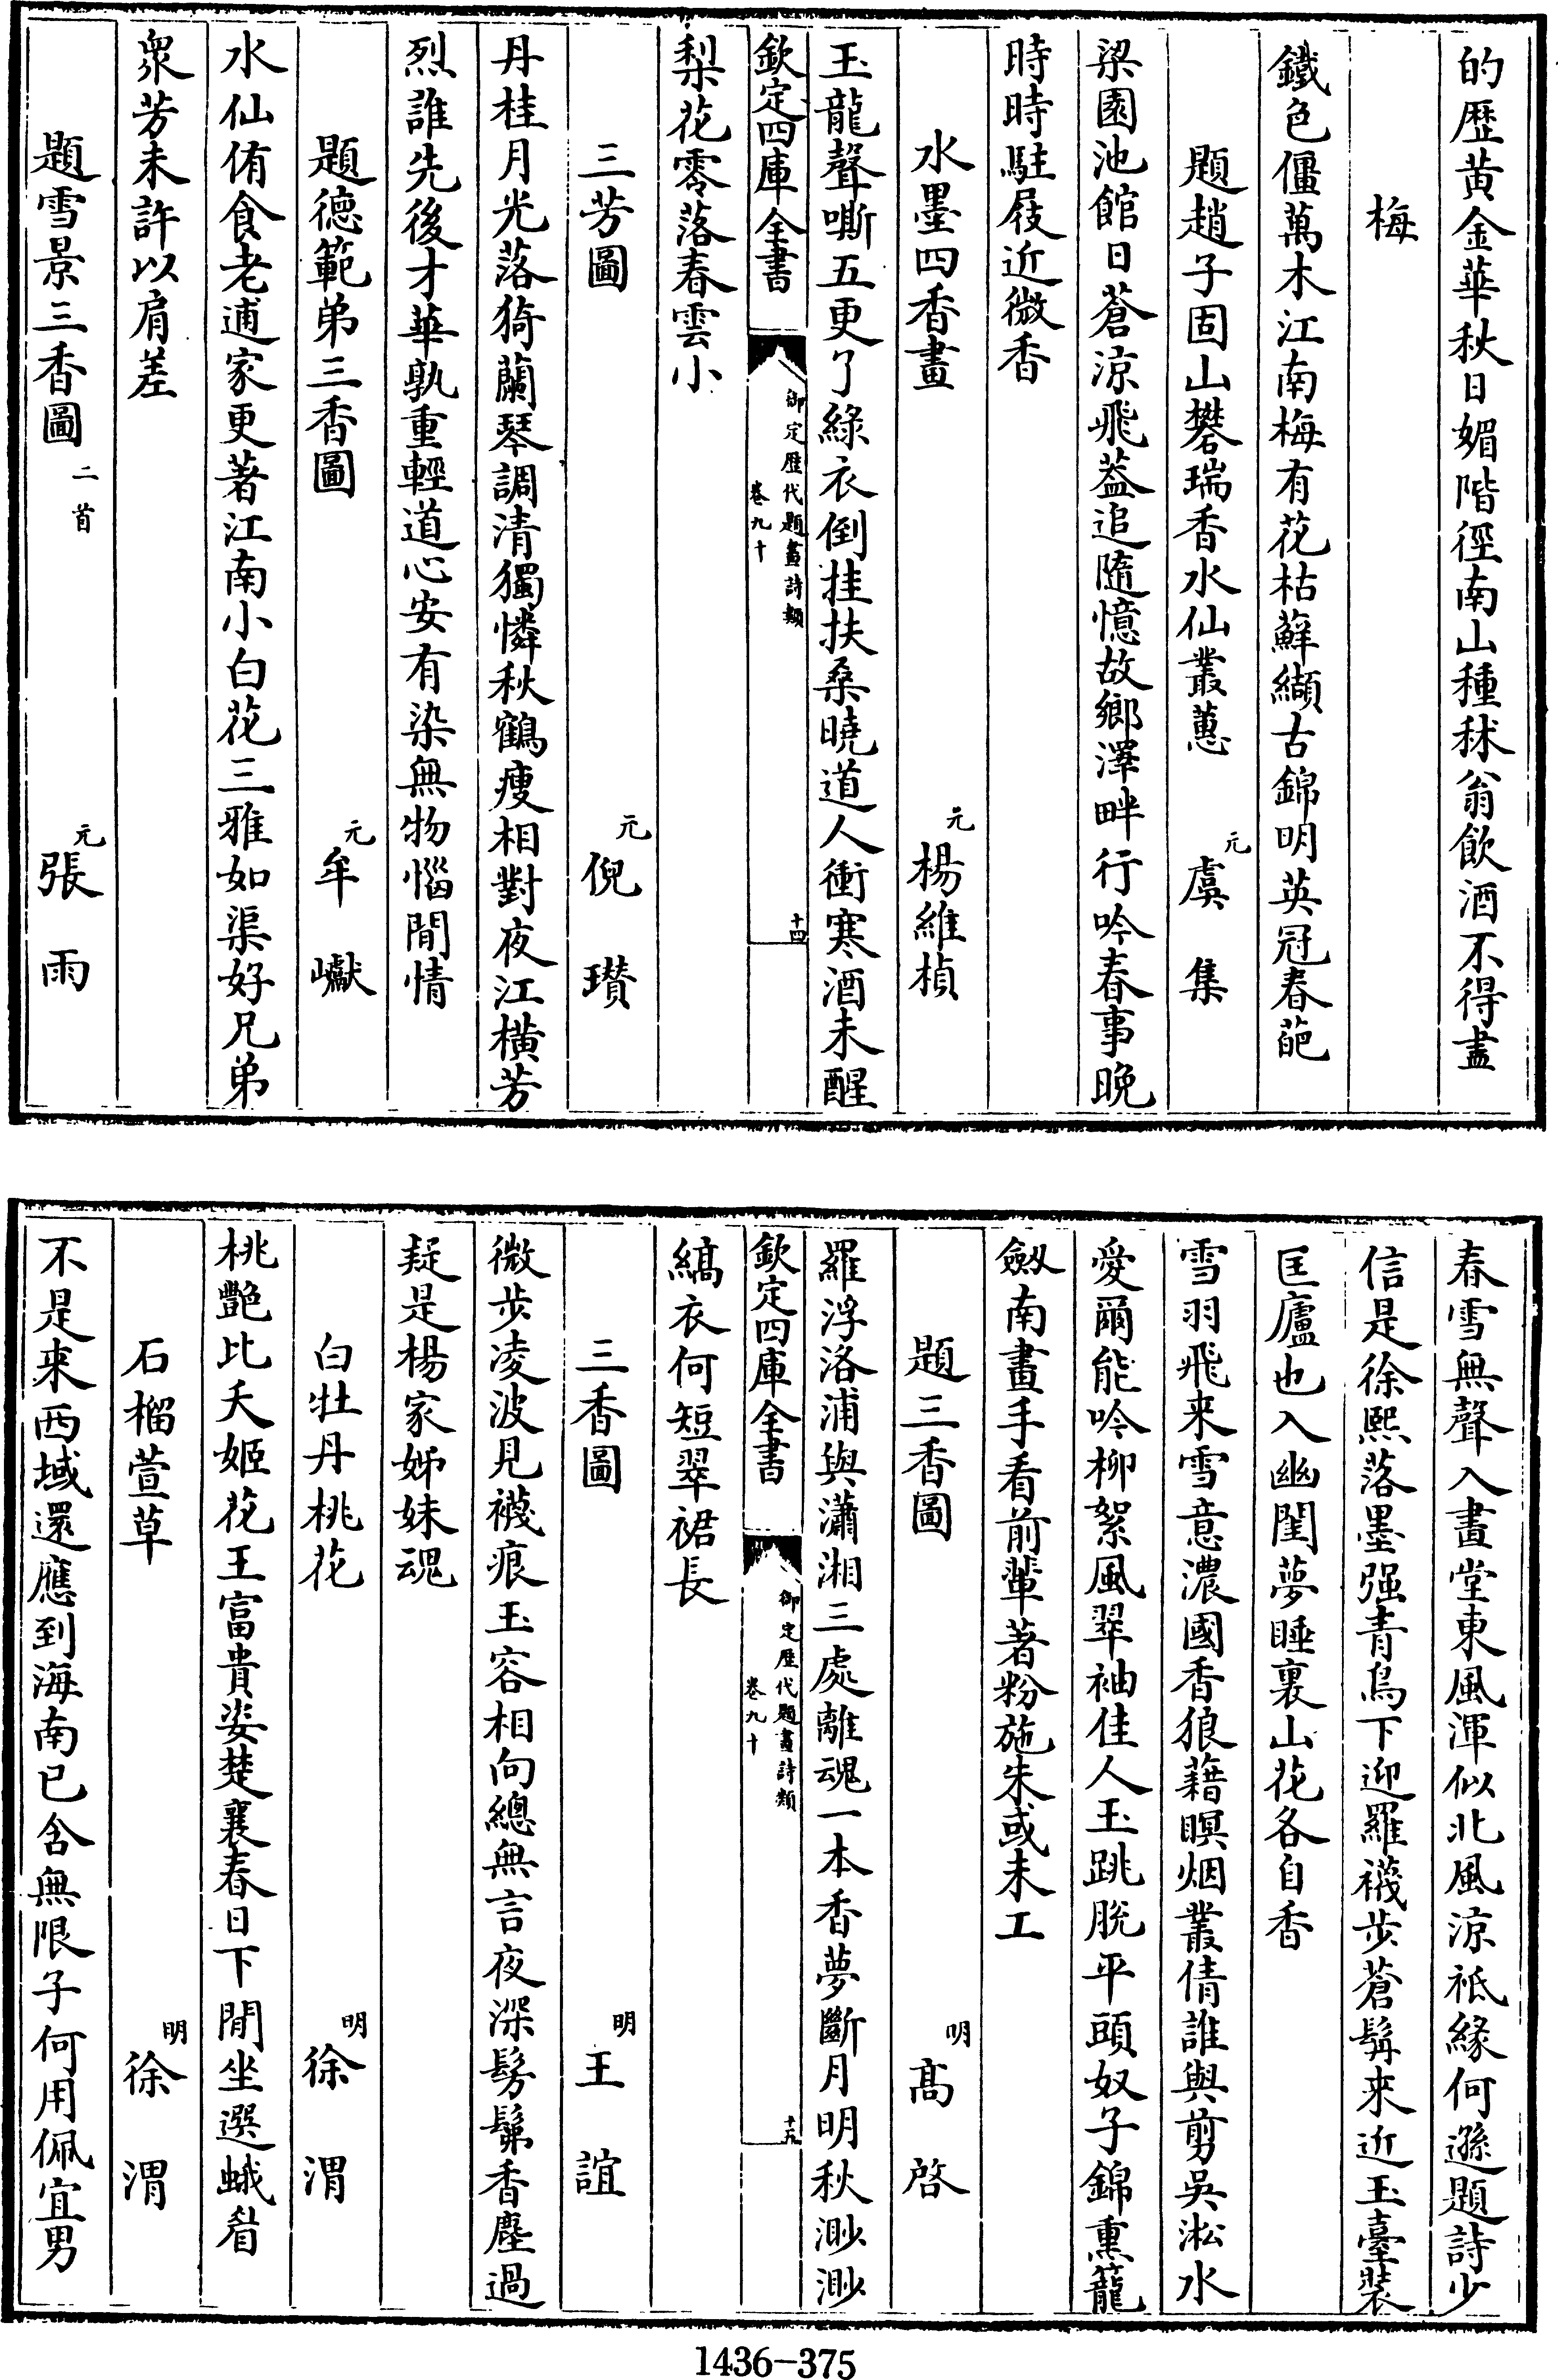 的歷黃金華秋日媚階徑南山種秫翁飲酒不得盡
梅
鐵色僵萬木江南梅有花枯蘚纈古錦明英冠春葩
題趙子固山礬瑞香水仙叢蕙 元 虞集
梁園池館日蒼涼飛葢追隨憶故鄉澤畔行吟春事晚
時時駐屐近微香
水墨四香畫 元 楊維楨
玉龍聲嘶五更了綠衣倒挂扶桑曉道人衝寒酒未醒
欽定四庫全書 御定歷代題畫詩類 卷九十 十四
梨花零落春雲小
三芳圖 元 倪瓚
丹桂月光落猗蘭琴調清獨憐秋鶴瘦相對夜江橫芳
烈誰先後才華孰重輕道心安有染無物惱閒情
題德範弟三香圖 元 牟巘
水仙侑食老逋家更著江南小白花三雅如渠好兄弟
衆芳未許以肩差
題雪景三香圖 二首 元 張雨
春雪無聲入畫堂東風渾似北風涼祗緣何遜題詩少
信是徐熙落墨强青鳥下迎羅襪步蒼髯来近玉臺裝
匡廬也入幽閨夢睡裏山花各自香
雪羽飛来雪意濃國香狼藉暝烟叢倩誰與剪吳淞水
愛爾能吟柳絮風翠袖佳人玉跳脫平頭奴子錦熏籠
劒南畫手看前輩著粉施朱或未工
題三香圖 明 髙啓
羅浮洛浦與瀟湘三處離魂一本香夢斷月明秋渺渺
欽定四庫全書 御定歷代題畫詩類 卷九十 十五
縞衣何短翠裙長
三香圖 明 王誼
微步凌波見襪痕玉容相向總無言夜深髣髴香塵過
疑是楊家姊妹魂
白牡丹桃花 明 徐渭
桃艷比夭姬花王富貴姿楚襄春日下閒坐選蛾眉
石榴萱草 明 徐渭
不是来西域還應到海南已含無限子何用佩宜男
1436-375